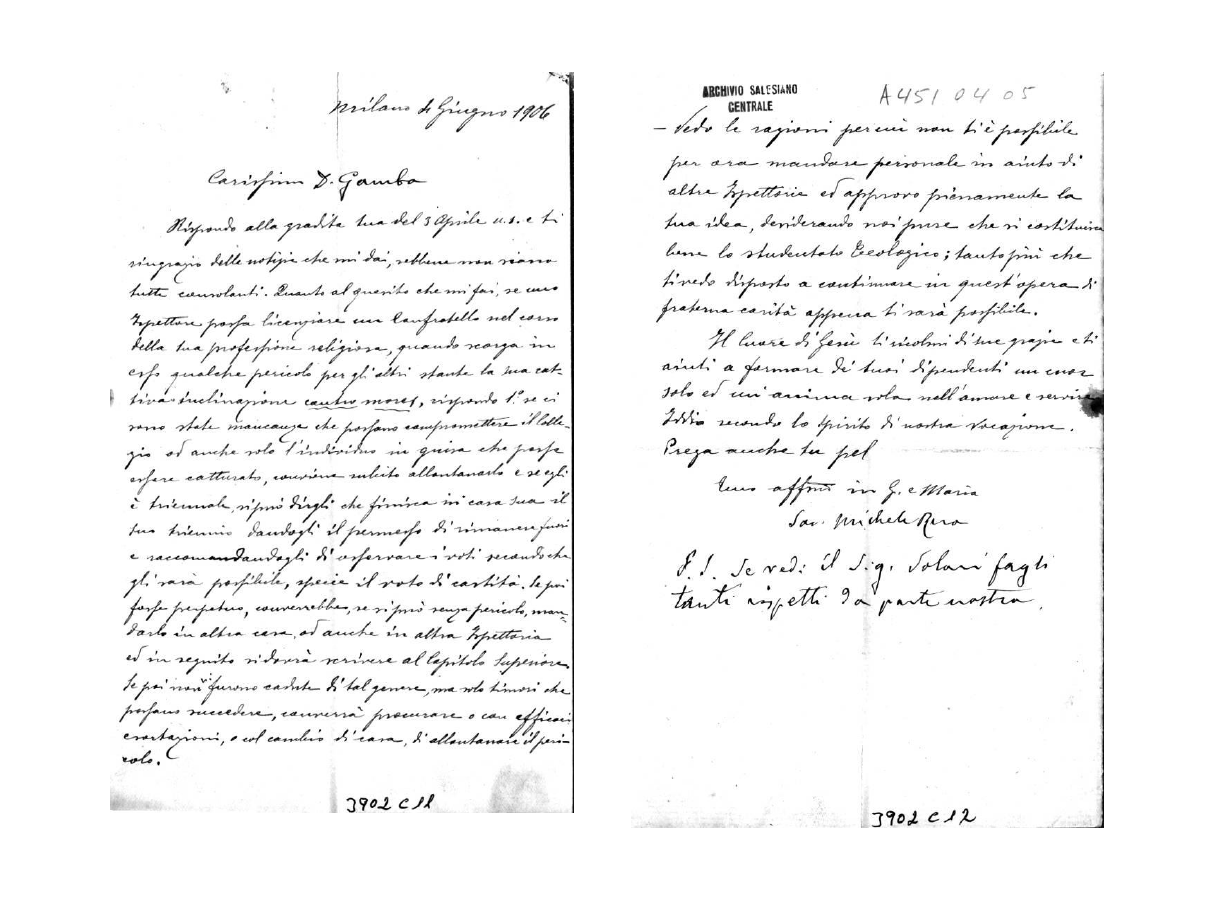 Milano 4 Giugno 1906
Carissimo D. Gamba
Rispondo alla gradita tua del 3 Aprile u.s. e ti
ringrazio delle notizie che mi dai, sebbene non siano
tutte consolanti. Quanto al quesito che mi fai, se uno
Ispettore possa licenziare un Confratello nel corso
della sua professione religiosa, quando scorga in
esso qualche pericolo per gli altri stante la sua cat-
tiva inclinazione contro mores, rispondo 1° se ci
sono state mancanze che possano compromettere il Colle-
gio od anche solo l'individuo in guisa che possa
essere catturato, conviene subito allontanarlo e se egli
è triennale, si può dirgli che finisca in casa sua il
suo triennio dandogli il permesso di rimanere fuori
e raccomandandogli di osservare i voti secondo che
gli sarà possibile, specie il voto di castità. Se poi
fosse perpetuo, converrebbe, se si può senza pericolo, man-
darlo in altra casa, od anche in altra Ispettoria
ed in seguito si dovrà scrivere al Capitolo Superiore.
Se poi non furono cadute di tal genere, ma solo timori che
possano succedere, converrà procurare o con efficaci
esortazioni, o col cambio di casa, di allontanare il peri-
colo.
3902 C 11
ARCHIVIO SALESIANO
CENTRALE
A451 04 05
– Vedo le ragioni per cui non ti è possibile
per ora mandare personale in aiuto di
altre Ispettorie ed approvo pienamente la
tua idea, desiderando noi pure che si costituisca
bene lo studentato Teologico; tanto più che
ti vedo disposto a continuare in quest'opera di
fraterna carità appena ti sarà possibile.
Il Cuore di Gesù ti ricolmi di sue grazie e ti
aiuti a formare de' tuoi dipendenti un cuor
solo ed un'anima sola nell'amore e servire
Iddio secondo lo spirito di nostra vocazione.
Prega anche tu pel
tuo affmo in G. e Maria
Sac. Michele Rua
P.S. Se vedi il Sig. Solari fagli
tanti rispetti da parte nostra.
3902 C 12